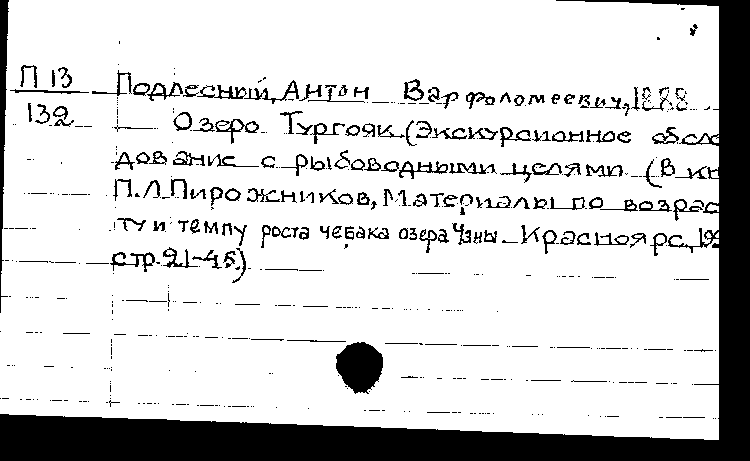 П 13 Подлесный, Антон Варфоломеевич, 1888
132 Озеро Тургояк (Экскурсионное обсле
дование с рыбоводными целями (В кн
П.Л. Пирожников, Материалы по возрас
ту и темпу роста чебака озера Чаны. Красноярс,, 192
стр. 21-45)